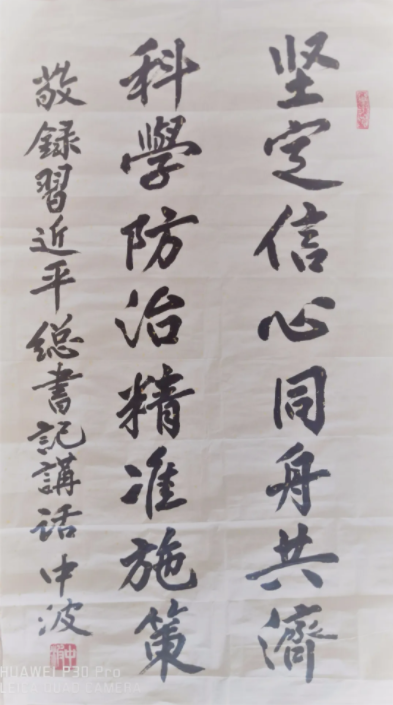 坚定信心同舟共濟
科學防治精准施策
敬録習近平總書記講话 中波
HUAWEI P30 Pro
LEICA QUAD CAMERA